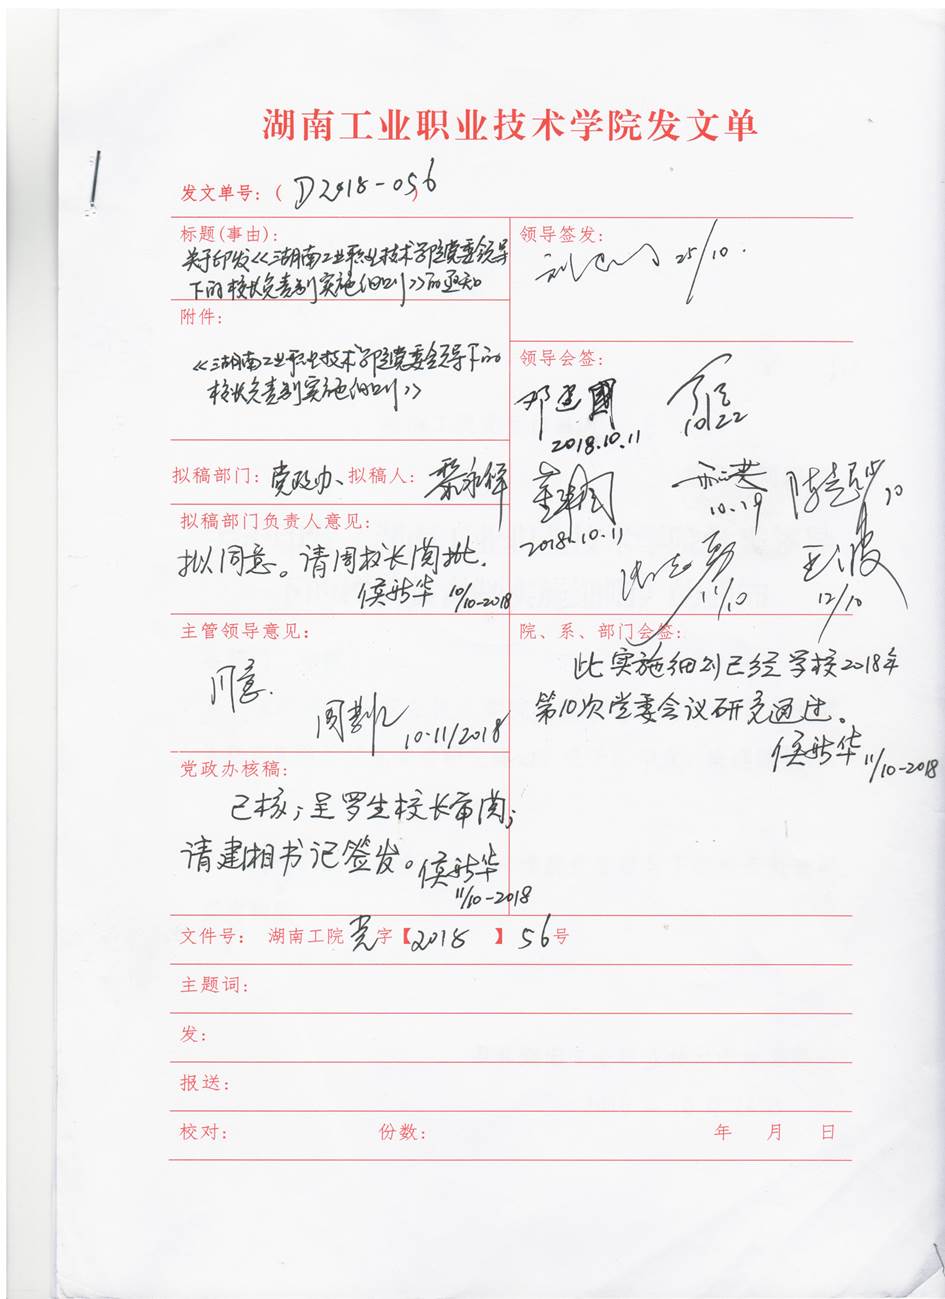 湖南工业职业技术学院发文单
发文单号：（ D2018-056 ）
标题(事由):
关于印发《湖南工业职业技术学院党委领导
下的校长负责制实施细则》的通知
附件:
《湖南工业职业技术学院党委领导下的
校长负责制实施细则》
拟稿部门: 党政办、拟稿人:
拟稿部门负责人意见:
拟同意。请周校长阅批.
侯新华 10/10-2018
主管领导意见:
同意.
10-11/2018
党政办核稿:
已核；呈罗生校长审阅；
请建湘书记签发。侯新华
11/10-2018
领导签发:
25/10.
领导会签:
邓建國
2018.10.11
10.22
2018.10.11
10.19
11/10
王波
12/10
院、系、部门会签:
此实施细则已经学校2018年
第10次党委会议研究通过。
侯新华 11/10-2018
文件号: 湖南工院党字【2018 】 56号
主题词:
发:
报送:
校对: 份数: 年 月 日